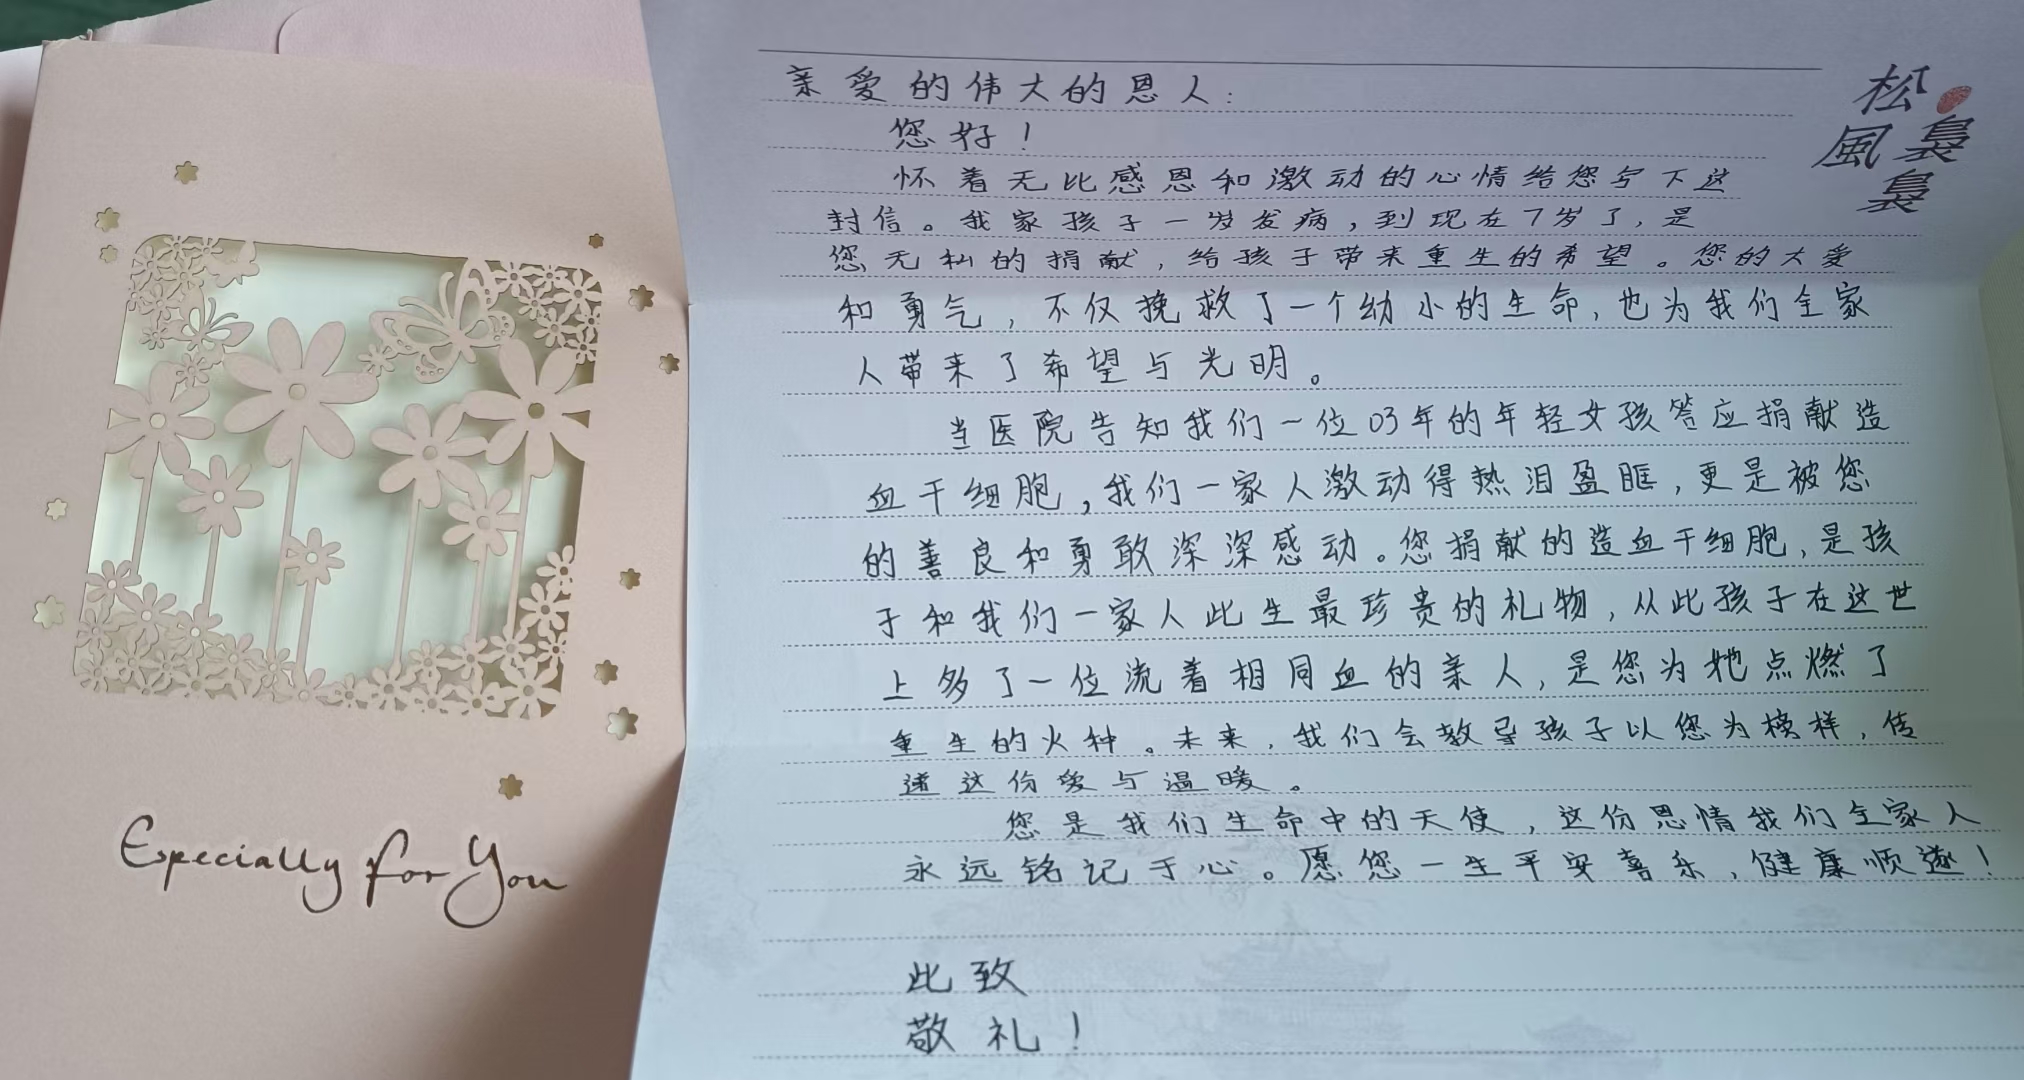 Especially for You
松
風 裊
裊
亲爱的伟大的恩人：
您好！
怀着无比感恩和激动的心情给您写下这
封信。我家孩子一岁发病，到现在7岁了，是
您无私的捐献，给孩子带来重生的希望。您的大爱
和勇气，不仅挽救了一个幼小的生命，也为我们全家
人带来了希望与光明。
当医院告知我们一位03年的年轻女孩答应捐献造
血干细胞，我们一家人激动得热泪盈眶，更是被您
的善良和勇敢深深感动。您捐献的造血干细胞，是孩
子和我们一家人此生最珍贵的礼物，从此孩子在这世
上多了一位流着相同血的亲人，是您为她点燃了
重生的火种。未来，我们会教导孩子以您为榜样，传
递这份爱与温暖。
您是我们生命中的天使，这份恩情我们全家人
永远铭记于心。愿您一生平安喜乐，健康顺遂！
此致
敬礼！